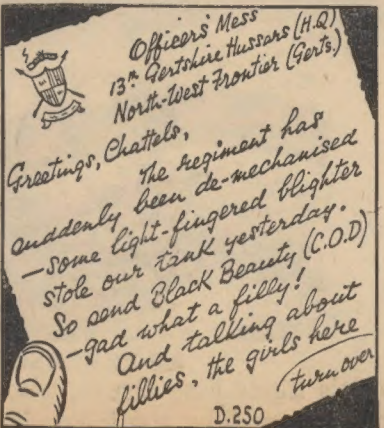 Officers' Mess
13th Gertshire Hussars (H.Q)
North-West Frontier (Gerts.)
Greetings, Chattels,
The regiment has
suddenly been de-mechanised
—some light-fingered blighter
stole our tank yesterday.
So send Black Beauty (C.O.D)
—gad what a filly!
And talking about
fillies, the girls here
(turn over
D.250